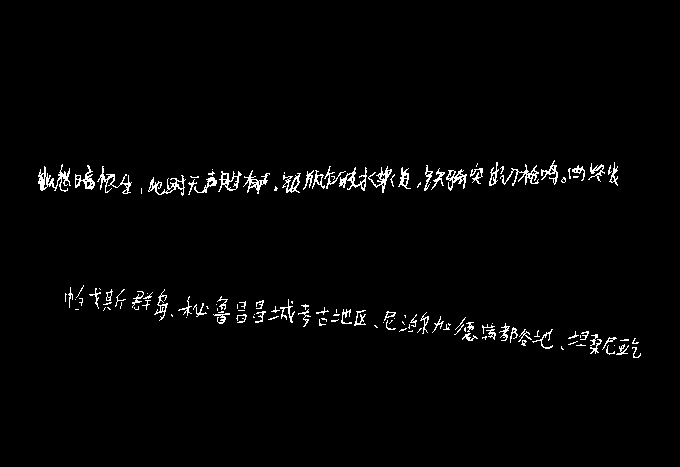 幽愁暗恨生,此时无声胜有声。银瓶乍破水浆迸,铁骑突出刀枪鸣。曲终收
帕戈斯群岛、秘鲁昌昌城考古地区、尼泊尔加德满都谷地、坦桑尼亚乞